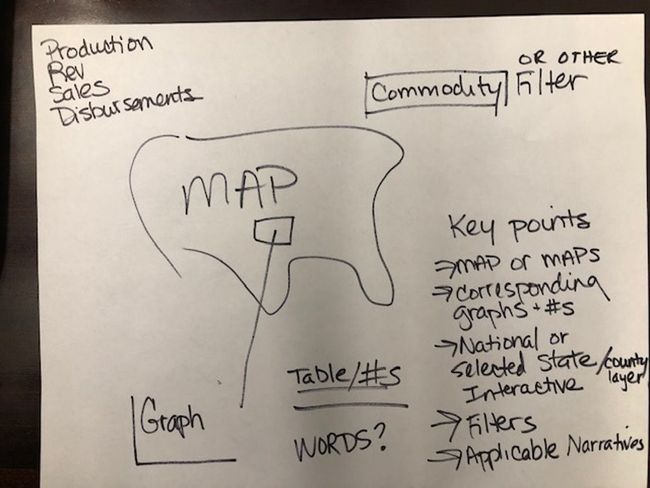 Production
Rev
Sales
Disbursements
OR OTHER
Commodity Filter
MAP
Key points
→ MAP or MAPS
→ Corresponding
graphs + #s
→ National or
selected State/county
layer
Interactive
→ Filters
→ Applicable Narratives
Table/#s
Graph
WORDS?